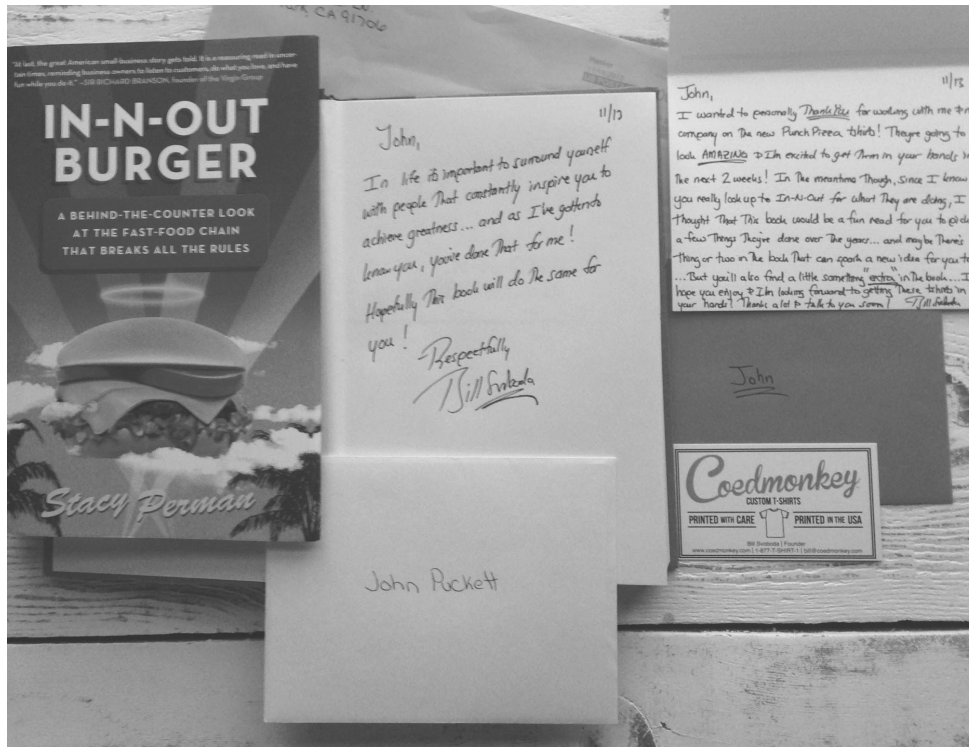 CA 91706
"At last, the great American small-business story gets told. It is a reassuring read in uncer-
tain times, reminding business owners to listen to customers, do what you love, and have
fun while you do it." —SIR RICHARD BRANSON, Founder of the Virgin Group
IN-N-OUT
BURGER
A BEHIND-THE-COUNTER LOOK
AT THE FAST-FOOD CHAIN
THAT BREAKS ALL THE RULES
Stacy Perman
11/13
John,
In life it's important to surround yourself
with people That constantly inspire you to
achieve greatness... and as I've gotten to
know you, you've done That for me!
Hopefully This book will do the same for
you!
Respectfully
Bill Svoboda
John Puckett
11/13
John,
I wanted to personally Thank You for working with me
company on the new Punch Pizza tshirts! They're going to
look AMAZING & I'm excited to get Them in your hands
The next 2 weeks! In the meantime Though, since I know
you really look up to In-N-Out for what They are doing, I
thought That This book would be a fun read for you to
a few Things They've done over The years... and maybe There's
thing or two in The book That can spark a new idea for you to
...But you'll also find a little something "extra" in The book... I
hope you enjoy & I'm looking forward to getting These tshirts in
your hands! Thanks a lot & talk to you soon! Bill Svoboda
John
Coedmonkey
CUSTOM T-SHIRTS
PRINTED WITH CARE PRINTED IN THE USA
Bill Svoboda | Founder
www.coedmonkey.com | 1-877-T-SHIRT-1 | bill@coedmonkey.com